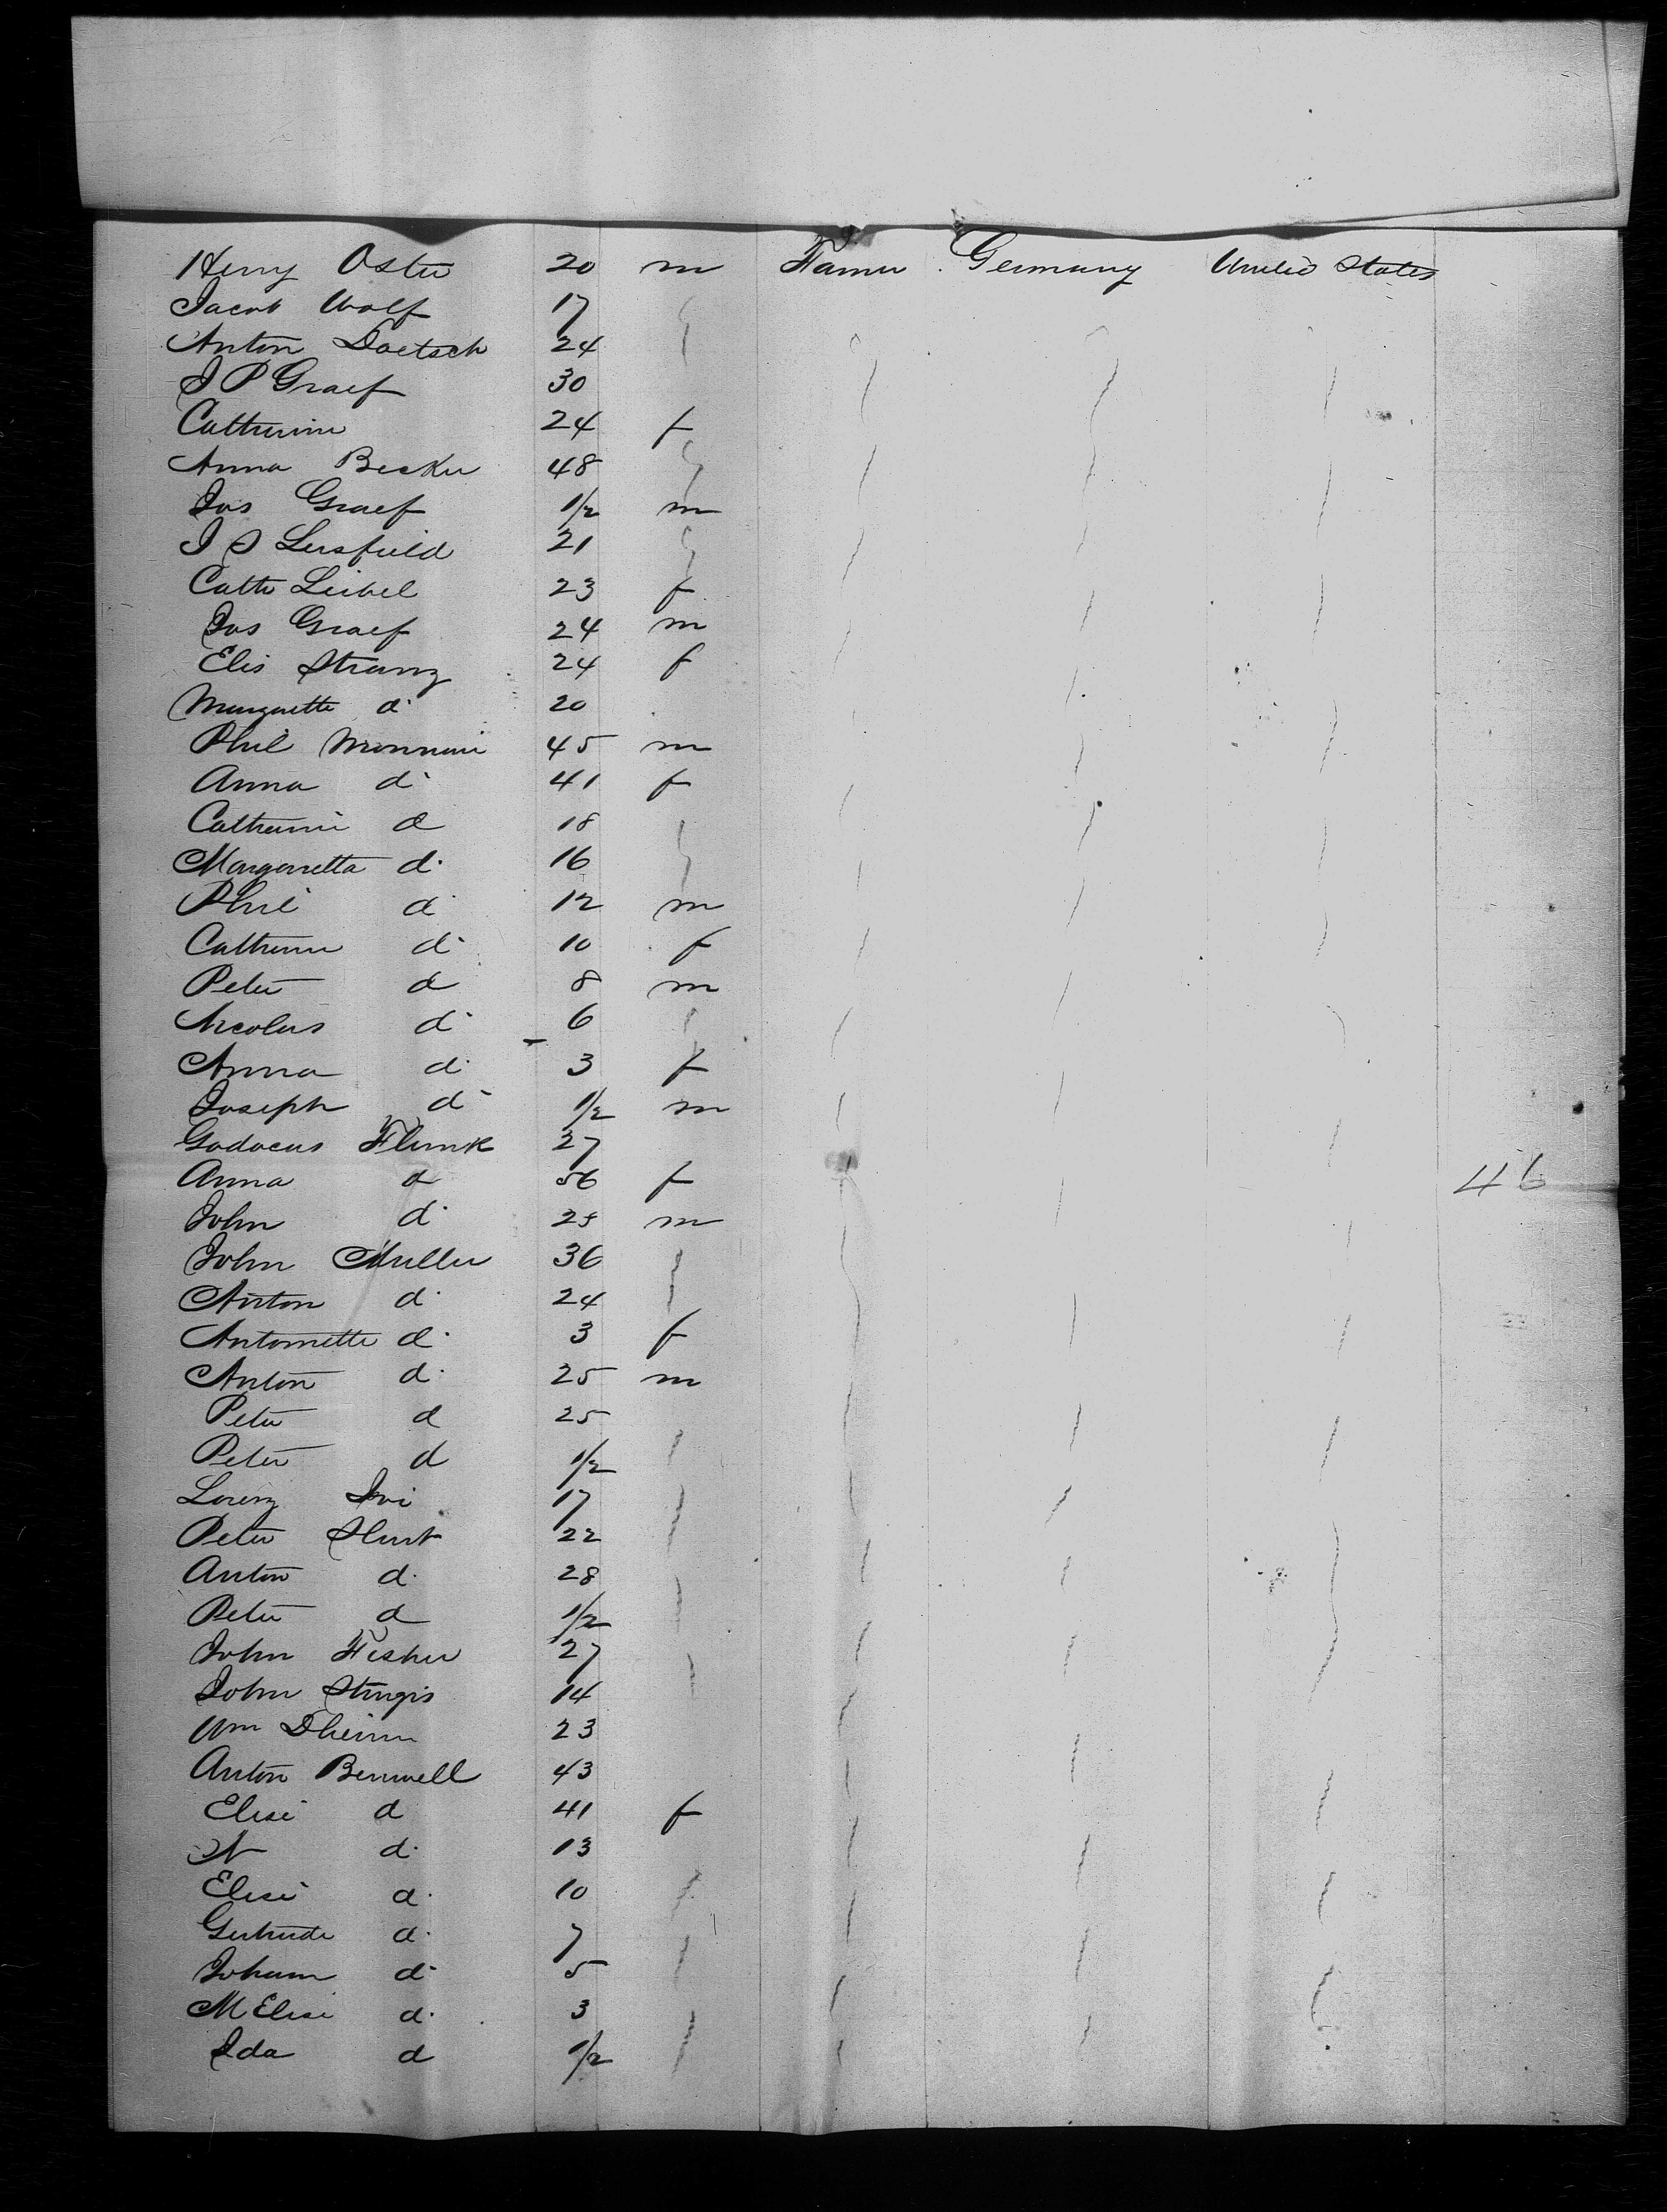 Henry Oster 20 m Farmer Germany United States
Jacob Wolf 17
Anton Doetsch 24
J P Graef 30
Catherine 24 f
Anna Becker 48
Jos Graef 1/2 m
J J 21
Cath Leibel 23 f
Jos Graef 24 m
Elis Strunz 24 f
Margarette do 20
Phil 45 m
Anna do 41 f
Catherine do 18
Margaretta do 16
Phil do 12 m
Catherine do 10 f
Peter do 8 m
Nicolas do 6
Anna do 3 f
Joseph do 1/2 m
Godocus Flunk 27
Anna do 56 f 46
John do 25 m
John Muller 36
Anton do 24
Antonette do 3 f
Anton do 25 m
Peter do 25
Peter do 1/2
Lorenz 17
Peter 22
Anton do 28
Peter do 1/2
John Fisher 27
John Sturgis 14
Wm 23
Anton Benwell 43
Elise do 41 f
A do 13
Elise do 10
Gertrude do 7
Johann do 5
M Elise do 3
Ida do 1/2